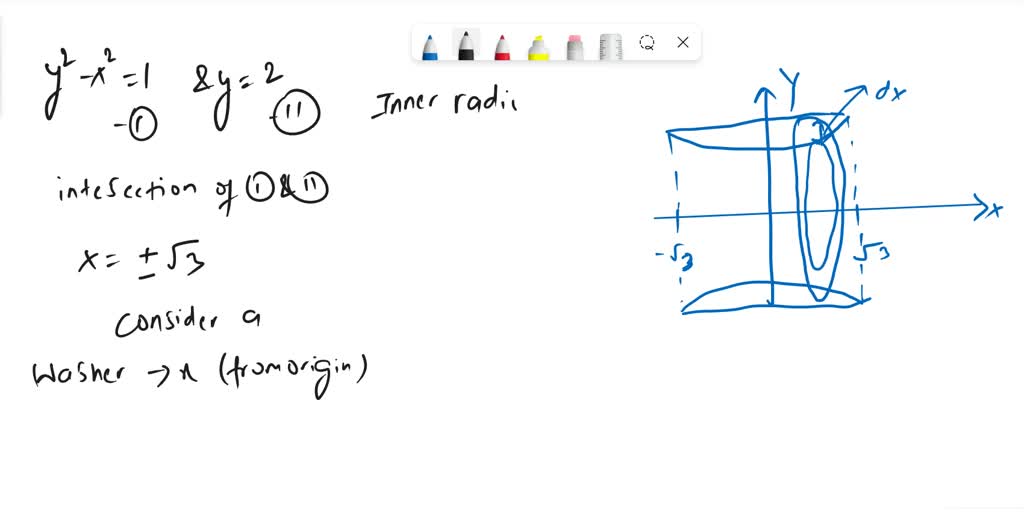 y²-x²=1 & y=2
-Ⓘ -Ⓘⓘ
Inner radii
intesection of Ⓘ & Ⓘⓘ
x = ± √3
Consider a
Washer → x (from origin)
Y
dx
x
-√3
√3